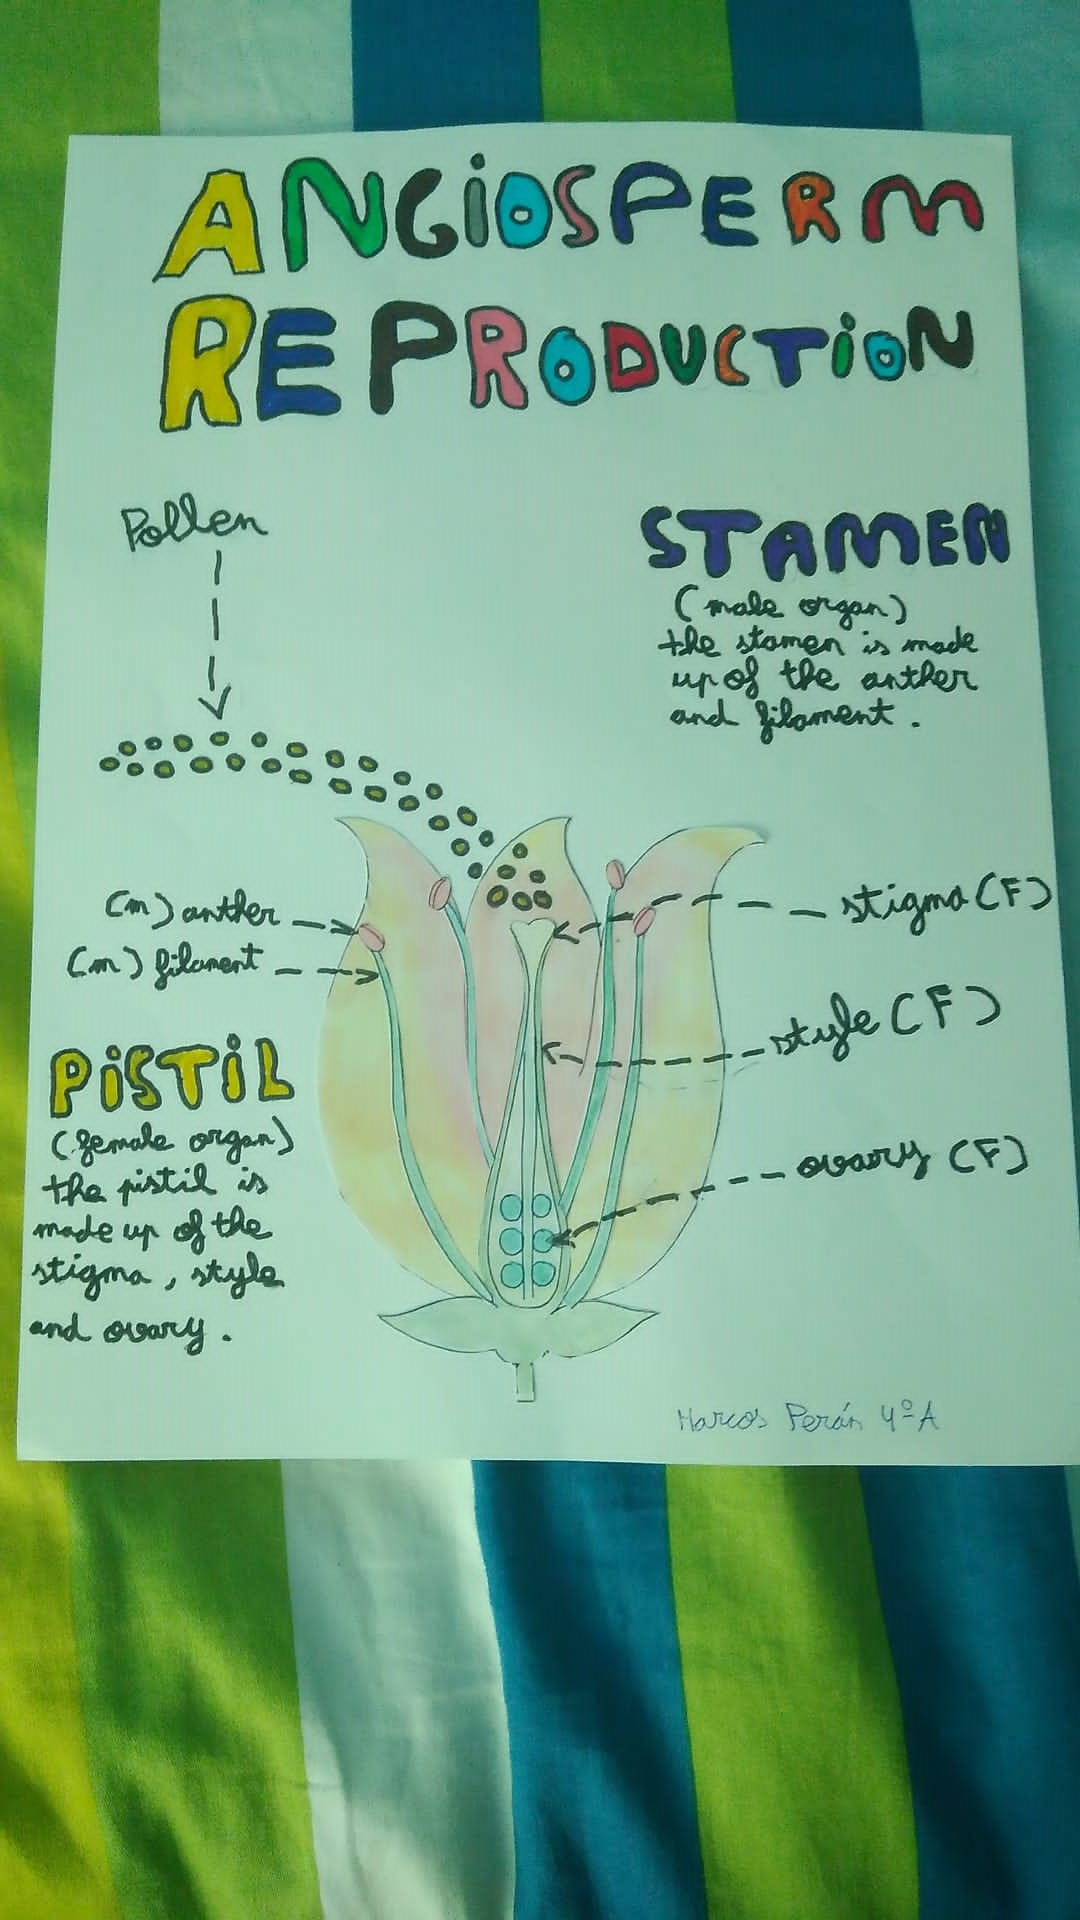 ANGiOSPERM
REPRODUCTiON
Pollen
STAMEN
(male organ)
the stamen is made
up of the anther
and filament.
(m) anther
(m) filament
stigma (F)
style (F)
ovary (F)
PiSTiL
(female organ)
the pistil is
made up of the
stigma, style
and ovary.
Marcos Perán 4ºA